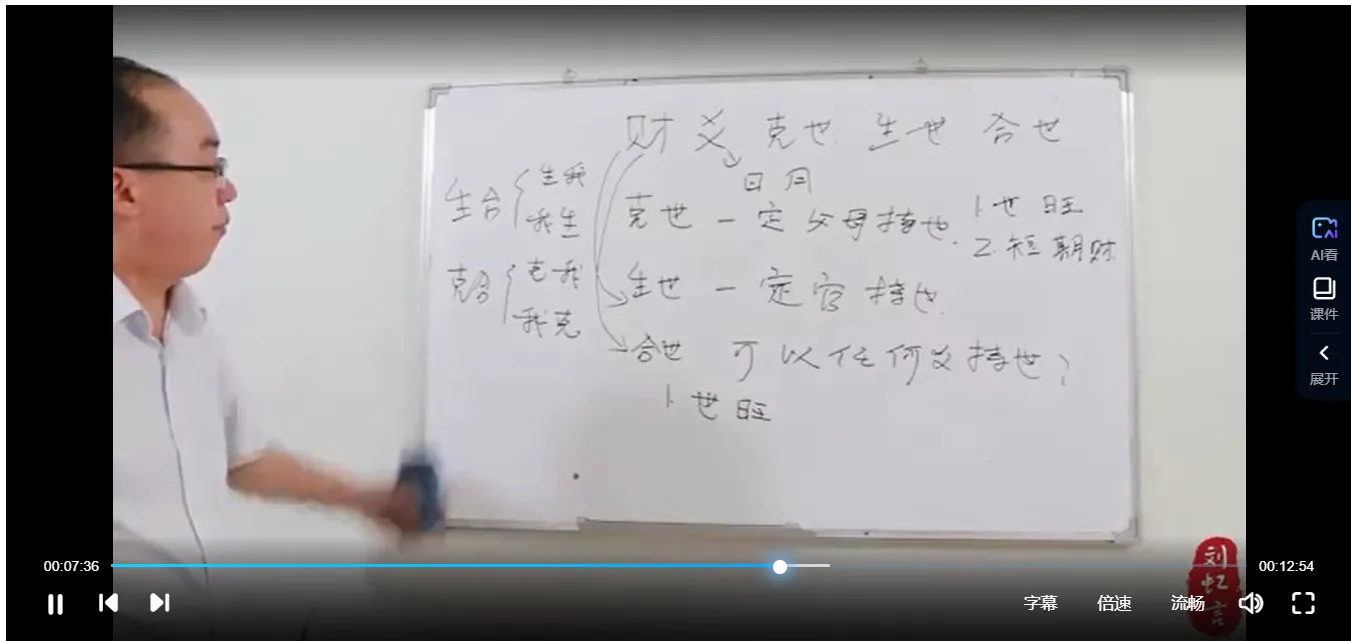 财爻 克世 生世 合世
日 月
生合 { 生我
我生
克世 一定父母持世.
1 世旺
2. 短期财
克合 { 克我
我克
生世 一定官持世.
合世 可以任何爻持世?
1 世旺
AI看
课件
展开
00:07:36
00:12:54
字幕
倍速
流畅
刘虹言